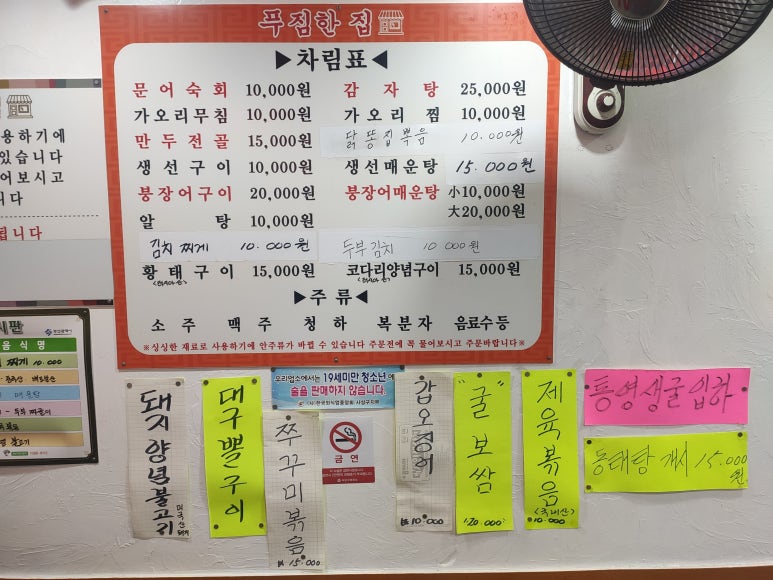 푸짐한 집
▶차림표◀
문어숙회 10,000원 감자탕 25,000원
가오리무침 10,000원 가오리찜 10,000원
만두전골 15,000원 닭똥집볶음 10.000원
생선구이 10,000원 생선매운탕 15.000원
붕장어구이 20,000원 붕장어매운탕 小10,000원
大20,000원
알탕 10,000원
김치찌게 10.000원 두부김치 10.000원
황태구이 15,000원 코다리양념구이 15,000원
<러시아산> <러시아산>
▶주류◀
소주 맥주 청하 복분자 음료수등
※싱싱한 재료로 사용하기에 안주류가 바뀔 수 있습니다 주문전에 꼭 물어보시고 주문바랍니다※
용하기에
있습니다
어보시고
니다
됩니다
시판
음식명
찌게 10.000
불고기
돼지양념불고기
미국산
대구뽈구이
우리업소에서는 19세미만 청소년에
술을 판매하지 않습니다.
쭈꾸미볶음
₩15.000
금연
갑오징어
₩10.000
"굴"보쌈
20.000
제육볶음
<국내산>
10.000
통영생굴입하
동태탕 개시 15.000
원